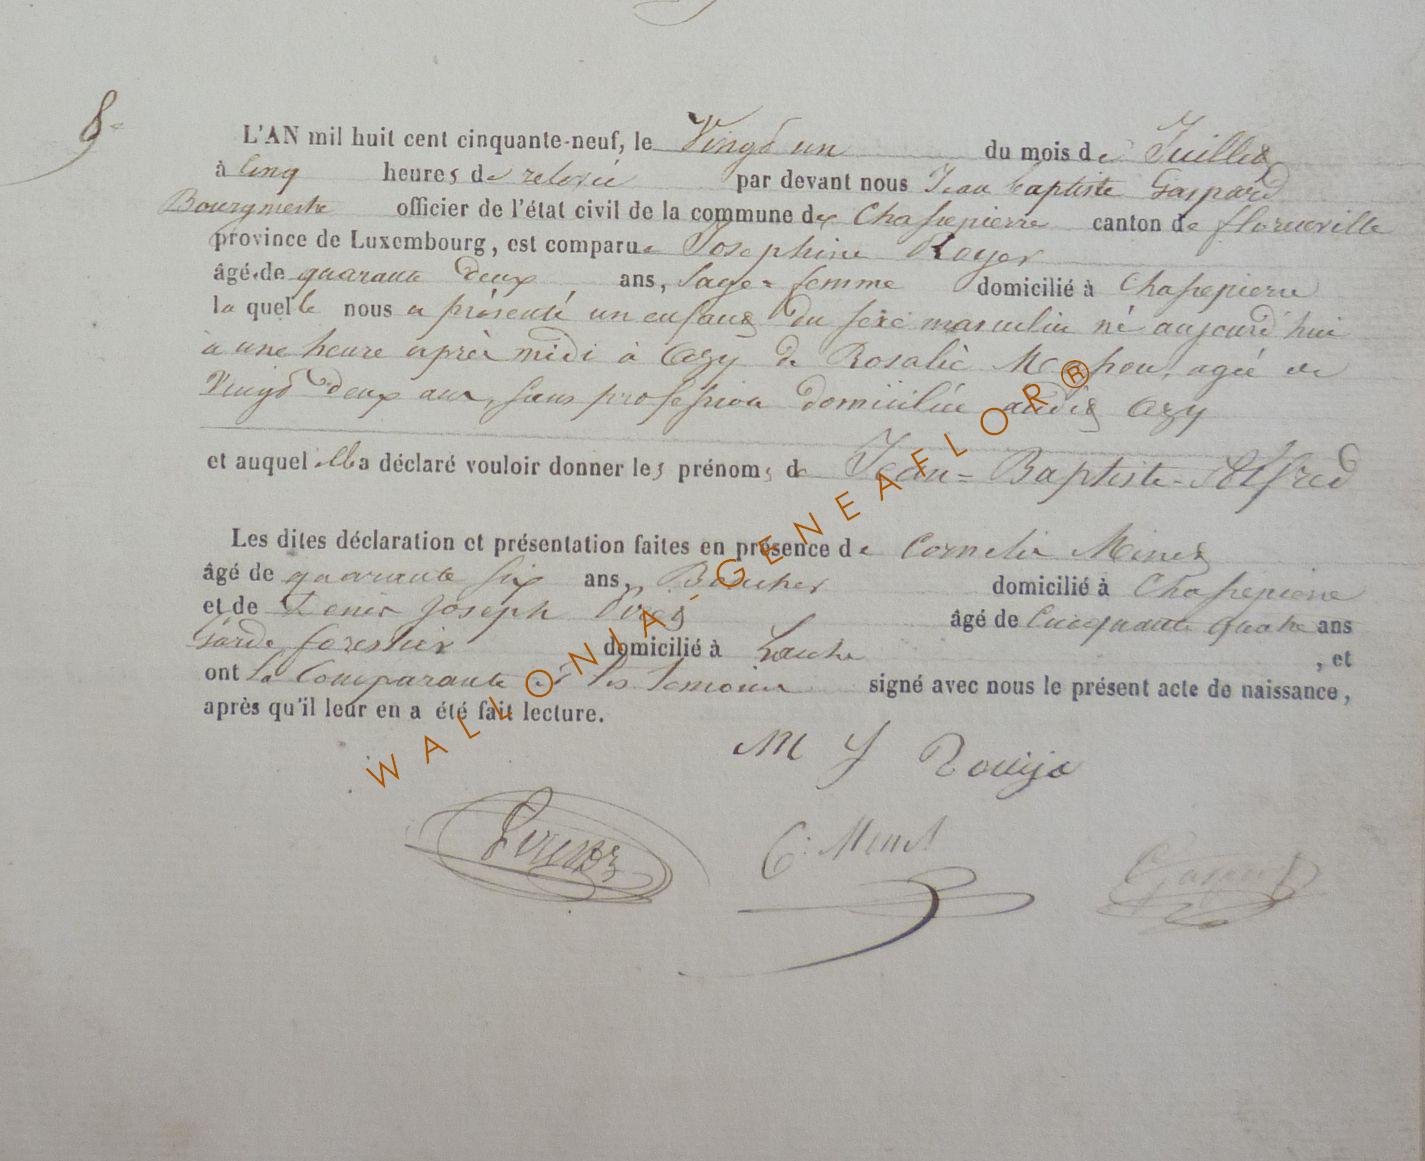 8e
L'AN mil huit cent cinquante-neuf, le Vingt un du mois de Juillet
à Cinq heures de relevée par devant nous Jean Baptiste Gaspard
Bourgmestre officier de l'état civil de la commune de Chassepierre canton de florenville
province de Luxembourg, est comparue Josephine Royer
âgé de quarante deux ans, Sage-femme domicilié à Chassepierre
la quelle nous a présenté un enfant du sexe masculin né aujourd'hui
à une heure après midi à Azy de Rosalie agée de
Vingt deux ans, sans profession domiciliée audit Azy
et auquel elle a déclaré vouloir donner les prénoms de Jean-Baptiste-Alfred
Les dites déclaration et présentation faites en présence de Cornelis
âgé de quarante six ans, domicilié à Chassepierre
et de Denis Joseph âgé de Cinquante quatre ans
Garde forestier domicilié à Laiche, et
ont la Comparante et les temoins signé avec nous le présent acte de naissance,
après qu'il leur en a été fait lecture.
M J
C. Menet
WALLONIA-GENEAFLOR®